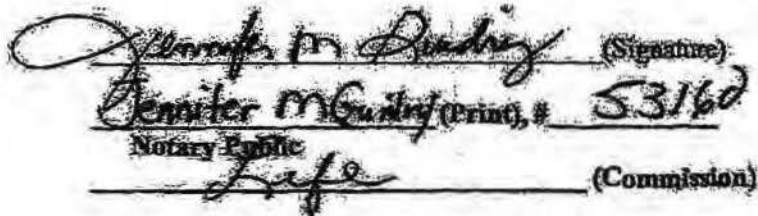 Jennifer M (Signature)
Jennifer M Guidry (Print), # 53160
Notary Public
Life (Commission)